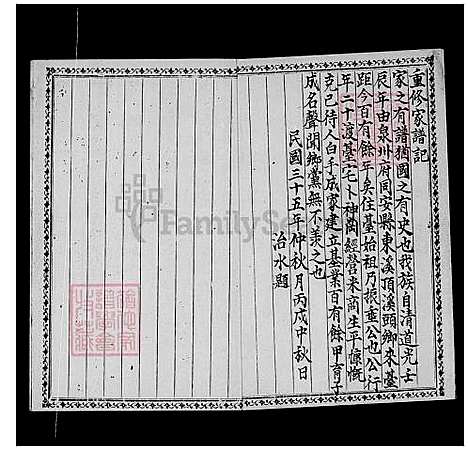 重修家譜記
家之有譜猶國之有史也我族自清道光壬
辰年由泉州府同安縣東溪頂溪頭鄉來臺
距今百有餘年矣住臺始祖乃振垂公也公行
年二十渡臺宅卜神岡經營米商生平慷慨
克己待人白手成家建立基業百有餘甲育子
成名聲聞鄉黨無不羨之也
民國三十五年仲秋月丙戌中秋日
治水題
FamilySe